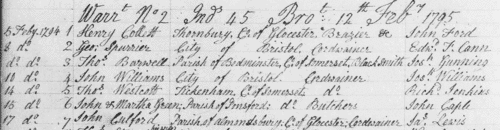 Warrt. No 2 Ind 45 Brot. 12th Feby 1795
5 Feby. 1794 1 Henry Collett Thornbury, C. of Glocester Brazier & John Ford
8 do. 2 Geo. Spurrier City of Bristol Cordwainer Edwd. T. Cann
do do. 3 Thos. Barwell Parish of Bedminster, C. of Somerset, Black Smith Jos. Gunning
10 do. 4 John Williams City of Bristol Cordwainer Jos. Williams
14 do 5 Thos. Westcott Tickenham, C. of Somerset do. Richd. Jenkins
16 do 6 John & Martha Green; Parish of do. Butchers John Caple
17 do. 7 John Parish of Almondsbury C. of Glocester; Cordwainer Jas. Lewis